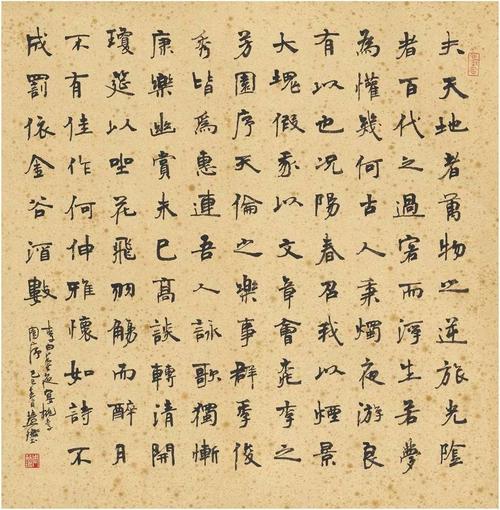 夫天地者萬物之逆旅光陰
者百代之過客而浮生若夢
為懽幾何古人秉燭夜游良
有以也況陽春召我以煙景
大塊假我以文章會桃李之
芳園序天倫之樂事群季俊
秀皆爲惠連吾人詠歌獨慚
康樂幽賞未已高談轉清開
瓊筵以坐花飛羽觴而醉月
不有佳作何伸雅懷如詩不
成罰依金谷酒數
李白春夜宴桃李
園序